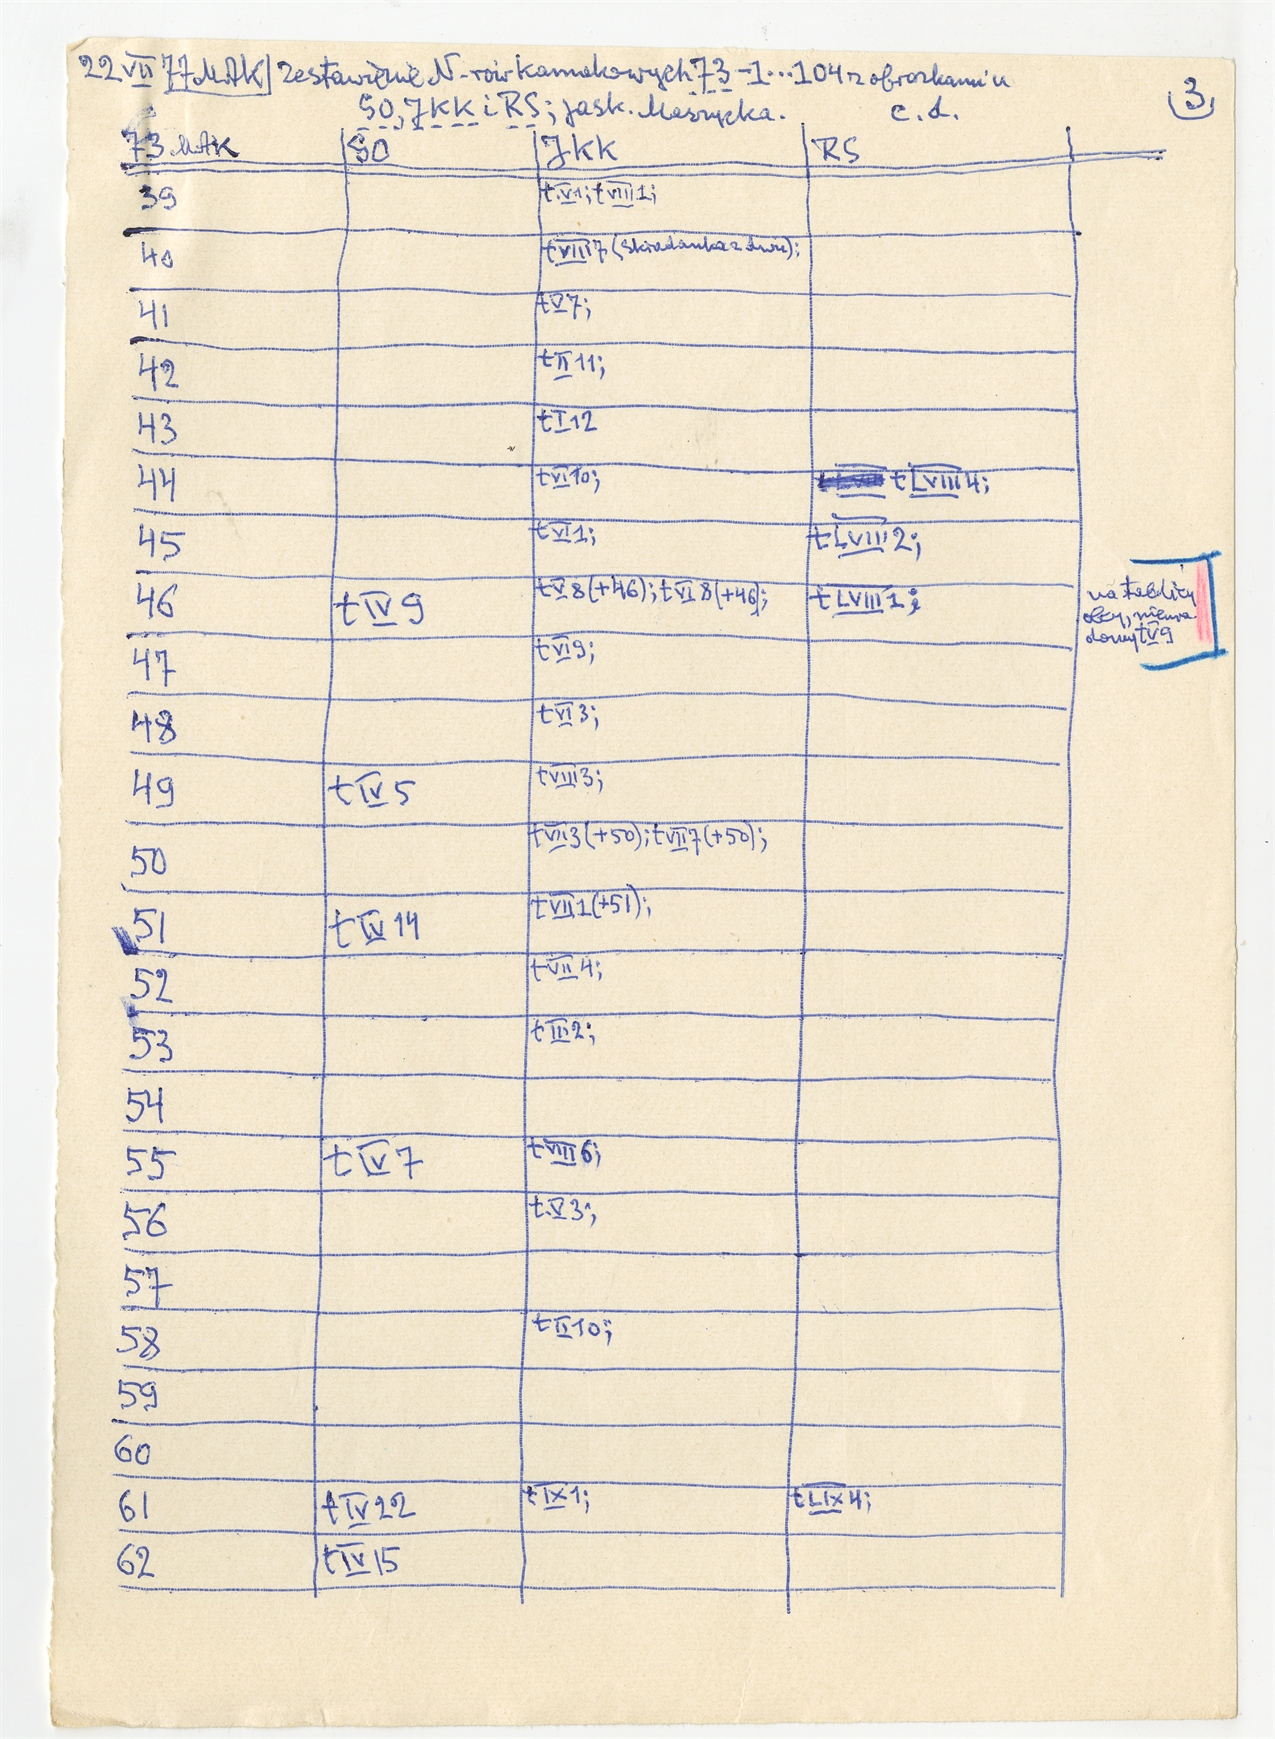 22 VII 77 MAK zestawienie N-rów kamakowych 73-1...104 z obrazkami u
SO, JKK i RS; jask. Maszycka. c.d.
3
73 MAK SO JKK RS
39 t.VI; tVIII1;
40 tVIII7 (składanka z dwu);
41 tV7;
42 tII11;
43 tI12
44 tVI10; tLVIII4;
45 tVI1; tLVIII2;
46 tIV9 tV8(+46); tVI8(+46); tLVIII1;
na tablicy
tV9
47 tVI9;
48 tVI3;
49 tIV5 tVIII3;
50 tVII3(+50); tVII7(+50);
51 tIV14 tVII1(+51);
52 tVII4;
53 tIII2;
54
55 tIV7 tVIII6;
56 t.V3;
57
58 tII10;
59
60
61 tIV22 tIX1; tLIX4;
62 tIV15